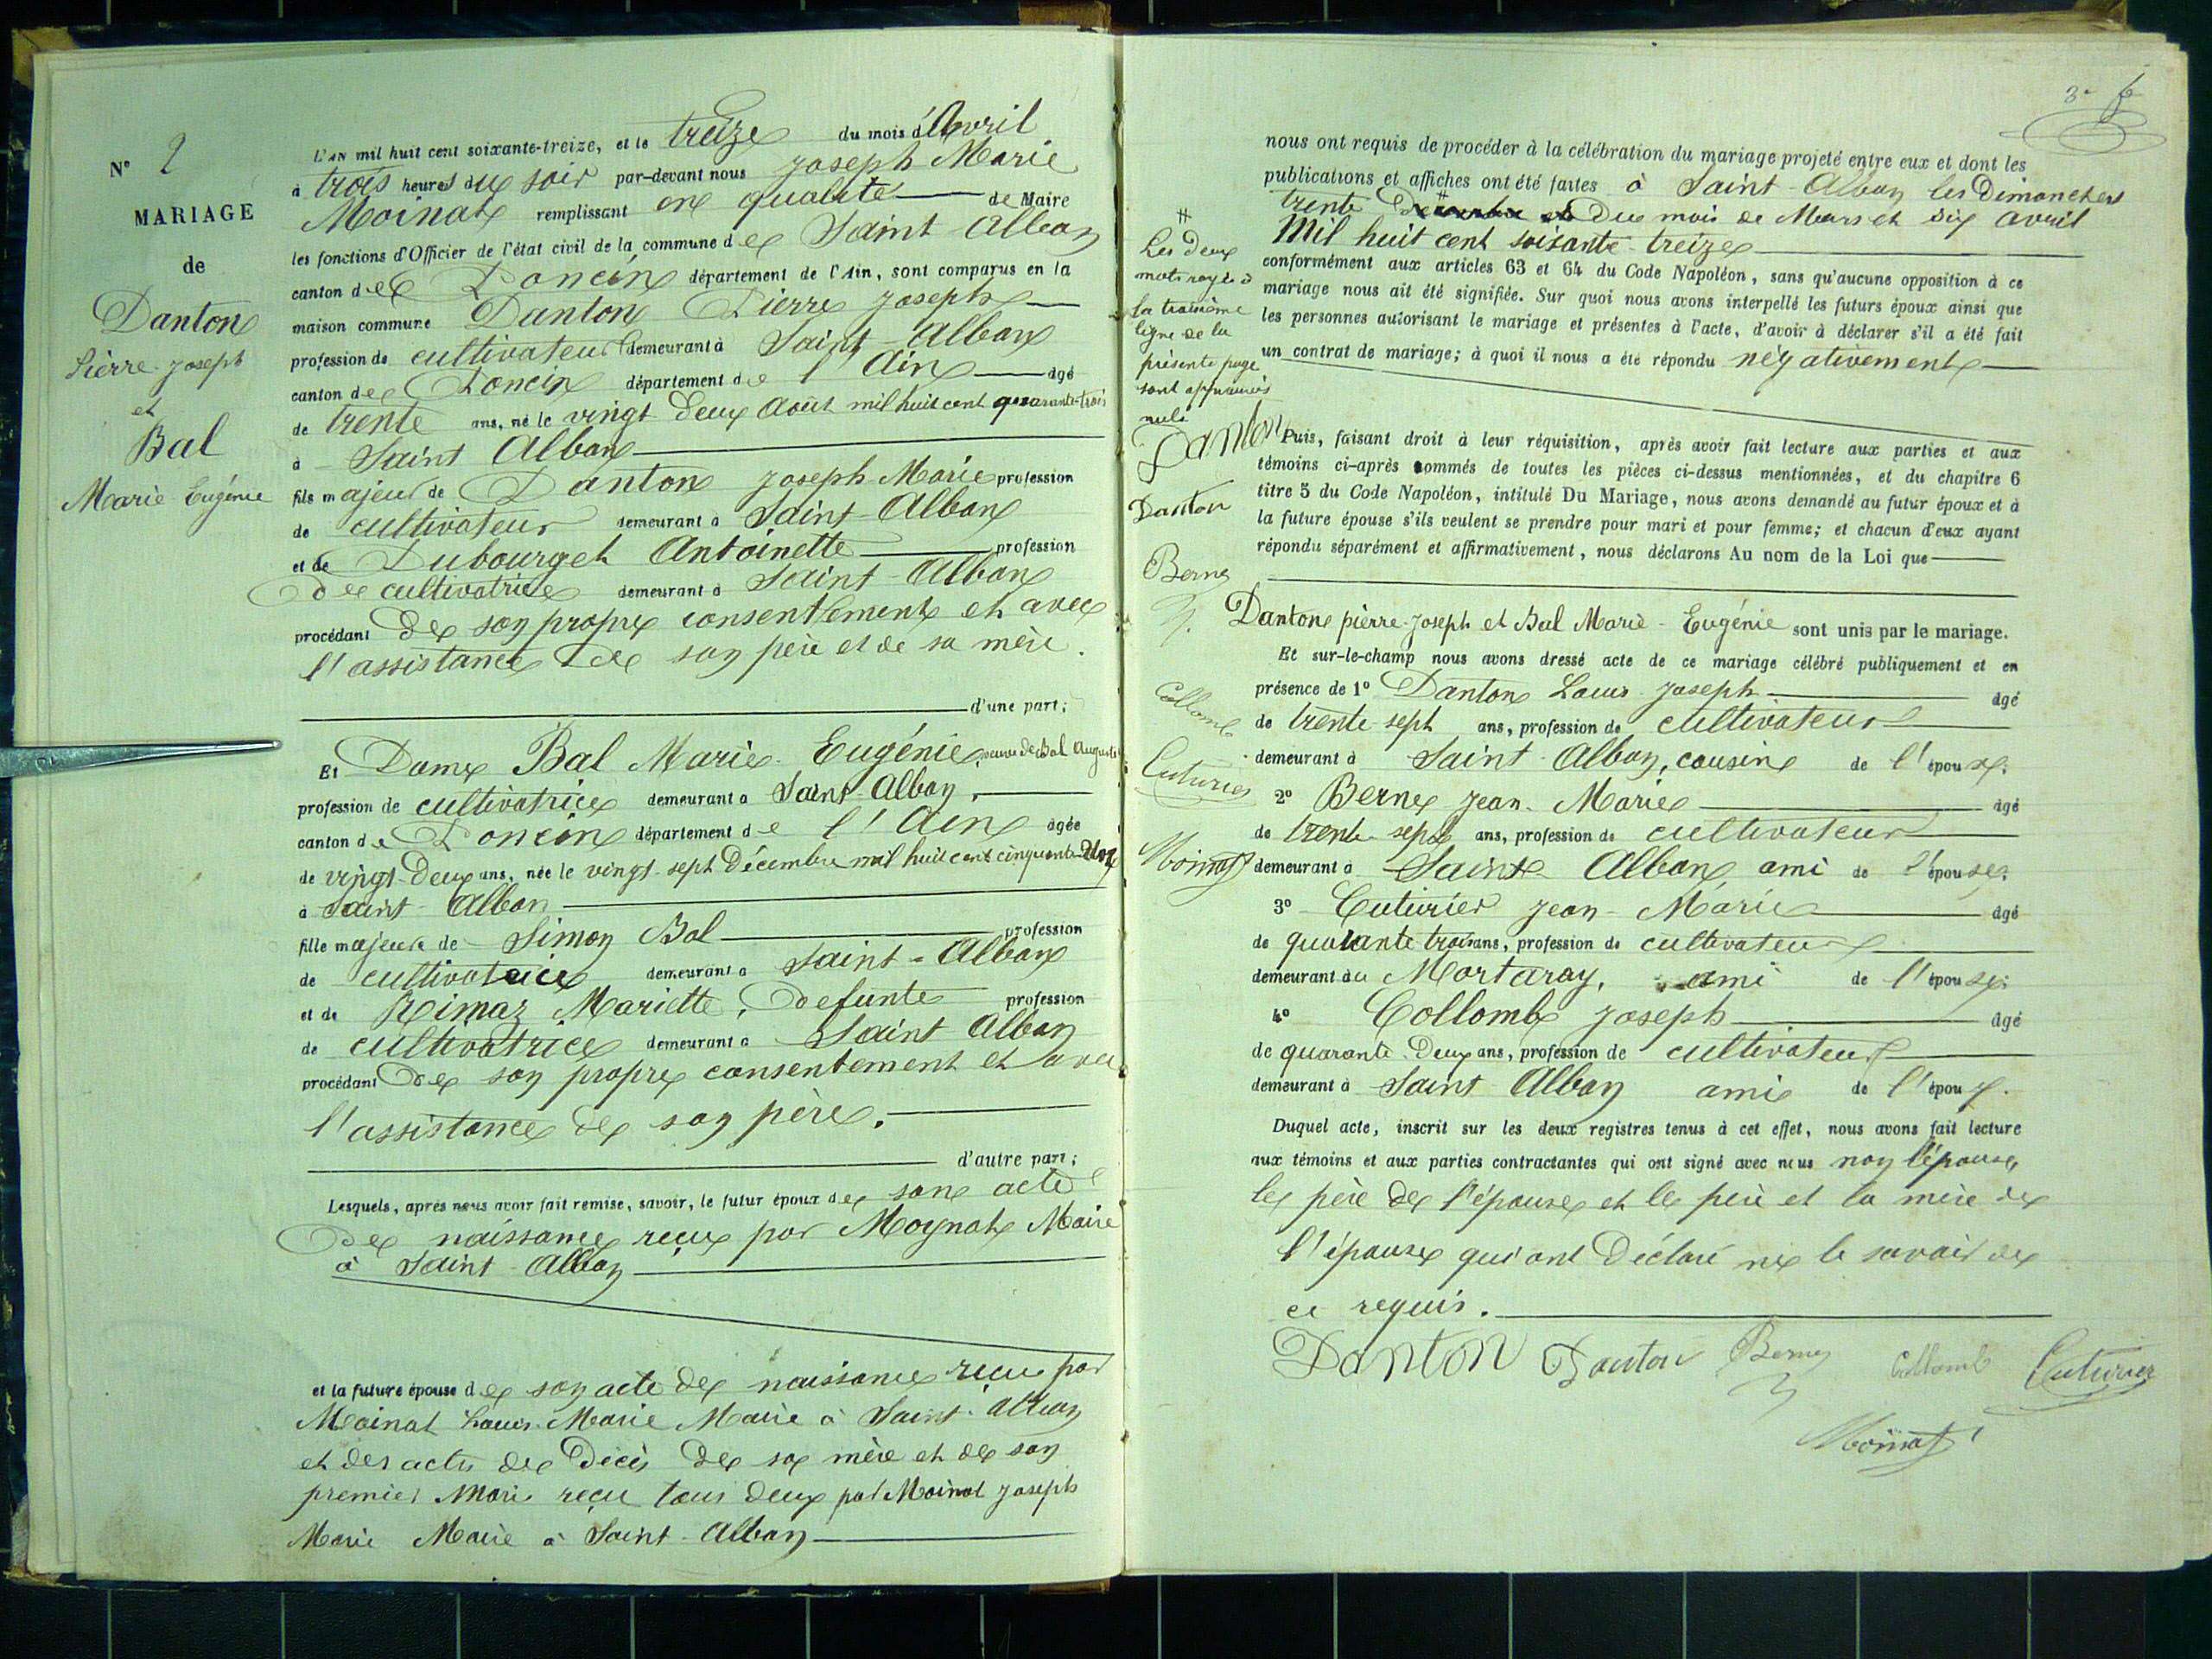 N° 2
MARIAGE
de
Danton
Pierre Joseph
et
Bal
Marie Eugénie
L'AN mil huit cent soixante-treize, et le treize du mois d'Avril
à trois heures du soir par-devant nous Joseph Marie
Moinat remplissant en qualité de Maire
les fonctions d'Officier de l'état civil de la commune de Saint Alban
canton de Poncin département de l'Ain, sont comparus en la
maison commune Danton Pierre Joseph
profession de cultivateur demeurant à Saint-Alban
canton de Poncin département de l'Ain âgé
de trente ans, né le vingt Deux Août mil huit cent quarante-trois
à Saint Alban
fils majeur de Danton Joseph Marie profession
de cultivateur demeurant à Saint-Alban
et de Dubourget Antoinette profession
de cultivatrice demeurant à Saint-Alban
procédant de son propre consentement et avec
l'assistance de son père et de sa mère.
d'une part;
Et Dame Bal Marie Eugénie veuve de Bal Auguste
profession de cultivatrice demeurant à Saint-Alban,
canton de Poncin département de l'Ain âgée
de vingt-Deux ans, née le vingt-sept Décembre mil huit cent cinquante
à Saint-Alban
fille majeure de Simon Bal profession
de cultivatrice demeurant à Saint-Alban
et de Rimaz Mariette, Defunte profession
de cultivatrice demeurant à Saint Alban
procédant de son propre consentement et avec
l'assistance de son père.
d'autre part;
Lesquels, après nous avoir fait remise, savoir, le futur époux de son acte
de naissance reçu par Moynat Maire
à Saint-Alban
et la future épouse de son acte de naissance reçu par
Moinat Louis-Marie Maire à Saint-Alban
et des actes de Décès de sa mère et de son
premier Mari reçu tous deux par Moinat Joseph
Marie Maire à Saint-Alban
3e
nous ont requis de procéder à la célébration du mariage projeté entre eux et dont les
publications et affiches ont été faites à Saint-Alban les Dimanches
trente # Du mois de Mars et six avril
Mil huit cent soixante-treize
conformément aux articles 63 et 64 du Code Napoléon, sans qu'aucune opposition à ce
mariage nous ait été signifiée. Sur quoi nous avons interpellé les futurs époux ainsi que
les personnes autorisant le mariage et présentes à l'acte, d'avoir à déclarer s'il a été fait
un contrat de mariage; à quoi il nous a été répondu négativement
#
les deux
mots rayés à
la troisième
ligne de la
présente page
sont
nuls
Danton
Danton
Berne
Collomb
Cuturier
Moinat
Puis, faisant droit à leur réquisition, après avoir fait lecture aux parties et aux
témoins ci-après nommés de toutes les pièces ci-dessus mentionnées, et du chapitre 6
titre 5 du Code Napoléon, intitulé Du Mariage, nous avons demandé au futur époux et à
la future épouse s'ils veulent se prendre pour mari et pour femme; et chacun d'eux ayant
répondu séparément et affirmativement, nous déclarons Au nom de la Loi que
Danton pierre-Joseph et Bal Marie-Eugénie sont unis par le mariage.
Et sur-le-champ nous avons dressé acte de ce mariage célébré publiquement et en
présence de 1° Danton Louis Joseph âgé
de trente-sept ans, profession de cultivateur
demeurant à Saint-Alban, cousin de l'époux.
2° Berne Jean-Marie âgé
de trente-sept ans, profession de cultivateur
demeurant à Saint Alban ami de l'épouse;
3° Cuturier Jean-Marie âgé
de quarante trois ans, profession de cultivateur
demeurant au Mortaray, ami de l'époux;
4° Collomb Joseph âgé
de quarante-Deux ans, profession de cultivateur
demeurant à Saint Alban ami de l'époux.
Duquel acte, inscrit sur les deux registres tenus à cet effet, nous avons fait lecture
aux témoins et aux parties contractantes qui ont signé avec nous non l'épouse,
le père de l'épouse et le père et la mère de
l'épouse qui ont Déclaré ne le savoir de
ce requis.
Danton Danton Berne Collomb Cuturier
Moinat